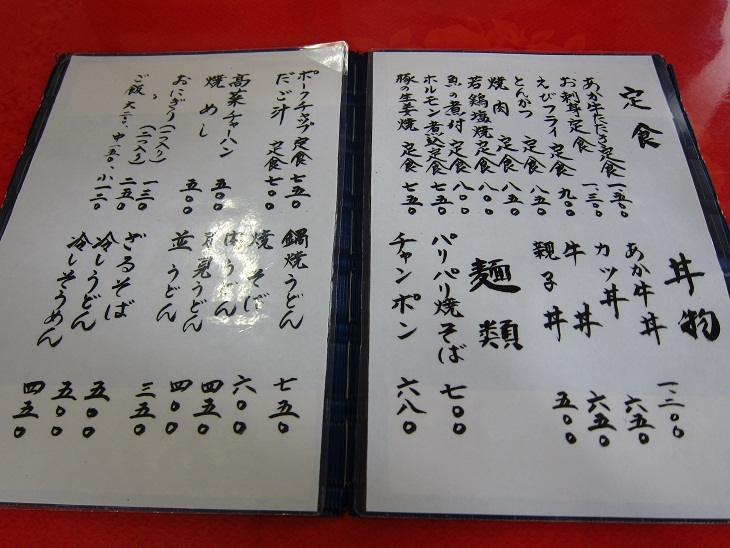 定食
あか牛たたき定食 一、五〇〇
お刺身定食 一、三〇〇
えびフライ定食 九〇〇
とんかつ定食 八五〇
焼肉定食 八五〇
若鶏塩焼定食 八〇〇
魚の煮付定食 八〇〇
ホルモン煮込定食 七五〇
豚の生姜焼定食 七五〇
丼物
あか牛丼 一、二〇〇
カツ丼 六五〇
牛丼 六五〇
親子丼 五〇〇
麺類
パリパリ焼そば 七〇〇
チャンポン 六八〇
ポークチャップ定食 七五〇
だご汁定食 七〇〇
高菜チャーハン 五〇〇
焼めし 五〇〇
おにぎり(一つ入り) 一三〇
〃(二つ入り) 二五〇
ご飯 大二〇〇、中一五〇、小一二〇
鍋焼うどん 七五〇
焼そば 六〇〇
肉うどん 四五〇
月見うどん 四〇〇
並うどん 三五〇
ざるそば 五〇〇
冷しうどん 五〇〇
冷しそうめん 四五〇